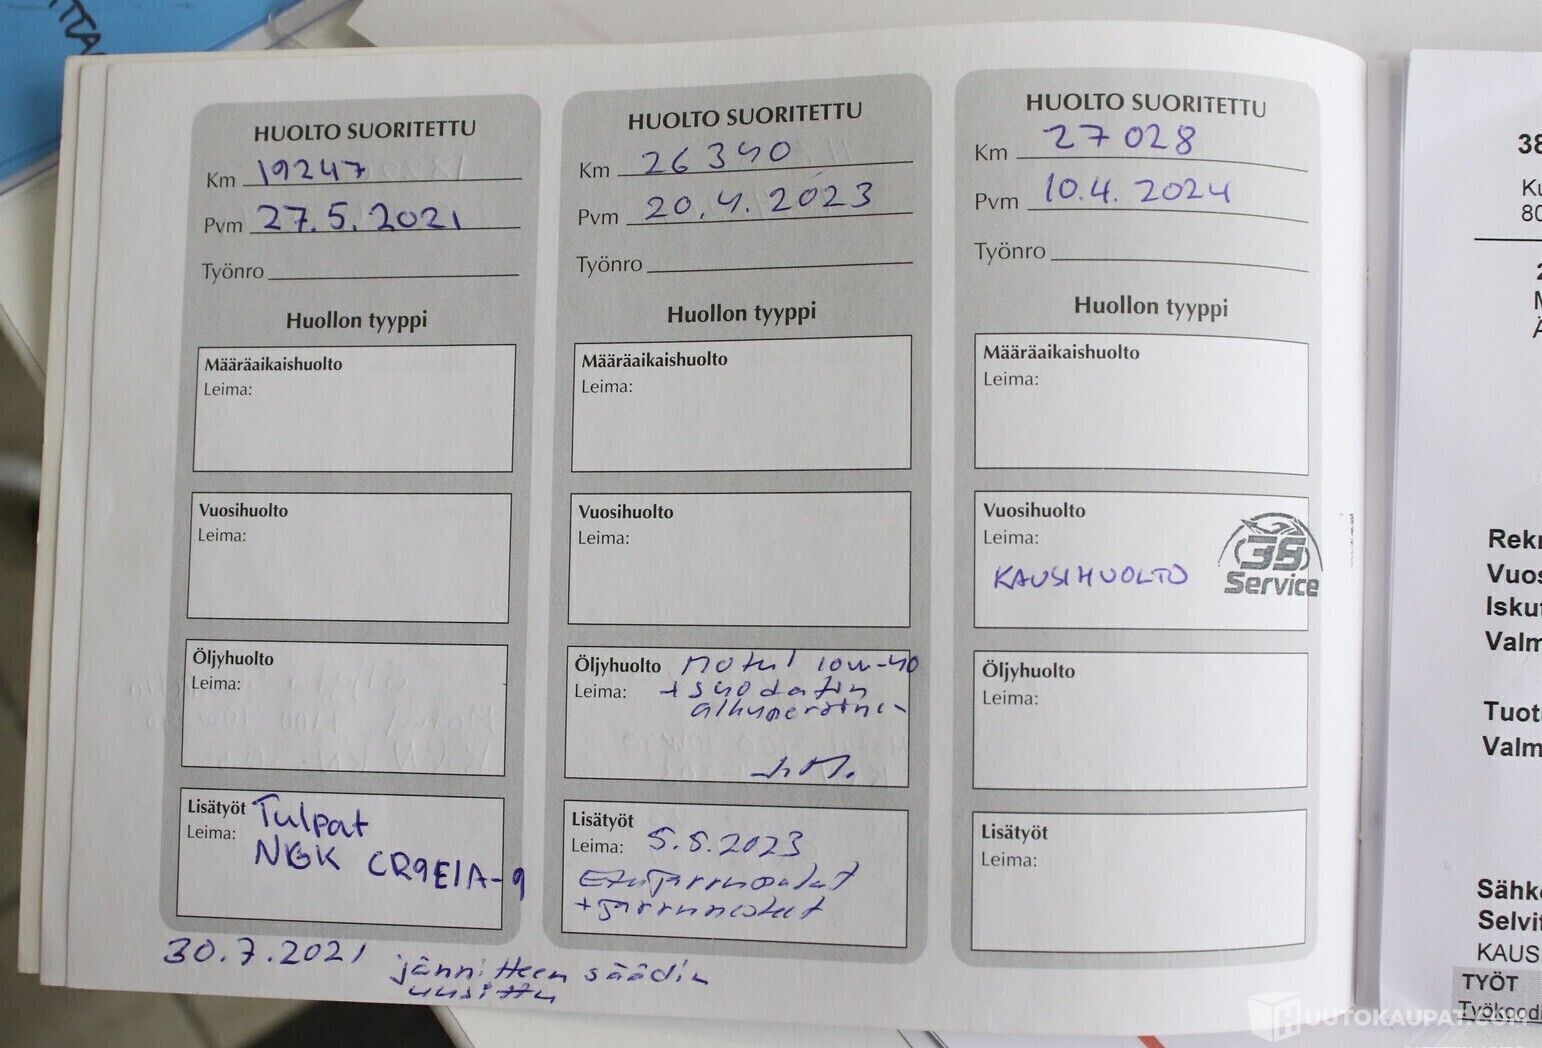 TTA
HUOLTO SUORITETTU
Km 19247
Pvm 27.5.2021
Työnro
Huollon tyyppi
Määräaikaishuolto
Leima:
Vuosihuolto
Leima:
Öljyhuolto
Leima:
Lisätyöt Tulpat
Leima: NGK CR9EIA-9
30.7.2021 jännitteen säädin
uusittu
HUOLTO SUORITETTU
Km 26340
Pvm 20.4.2023
Työnro
Huollon tyyppi
Määräaikaishuolto
Leima:
Vuosihuolto
Leima:
Öljyhuolto Motul 10w-40
Leima: + suodatin
alkuperäinen
Lisätyöt
Leima: 5.5.2023
Etujarrupalat
+ jarrunesteet
HUOLTO SUORITETTU
Km 27028
Pvm 10.4.2024
Työnro
Huollon tyyppi
Määräaikaishuolto
Leima:
Vuosihuolto
Leima:
KAUSIHUOLTO
38 Service
Öljyhuolto
Leima:
Lisätyöt
Leima:
38
Ku
80
Rek
Vuos
Isku
Valm
Tuot
Valm
Sähk
Selvit
KAUS
TYÖT
Työkood
HUUTOKAUPAT.COM